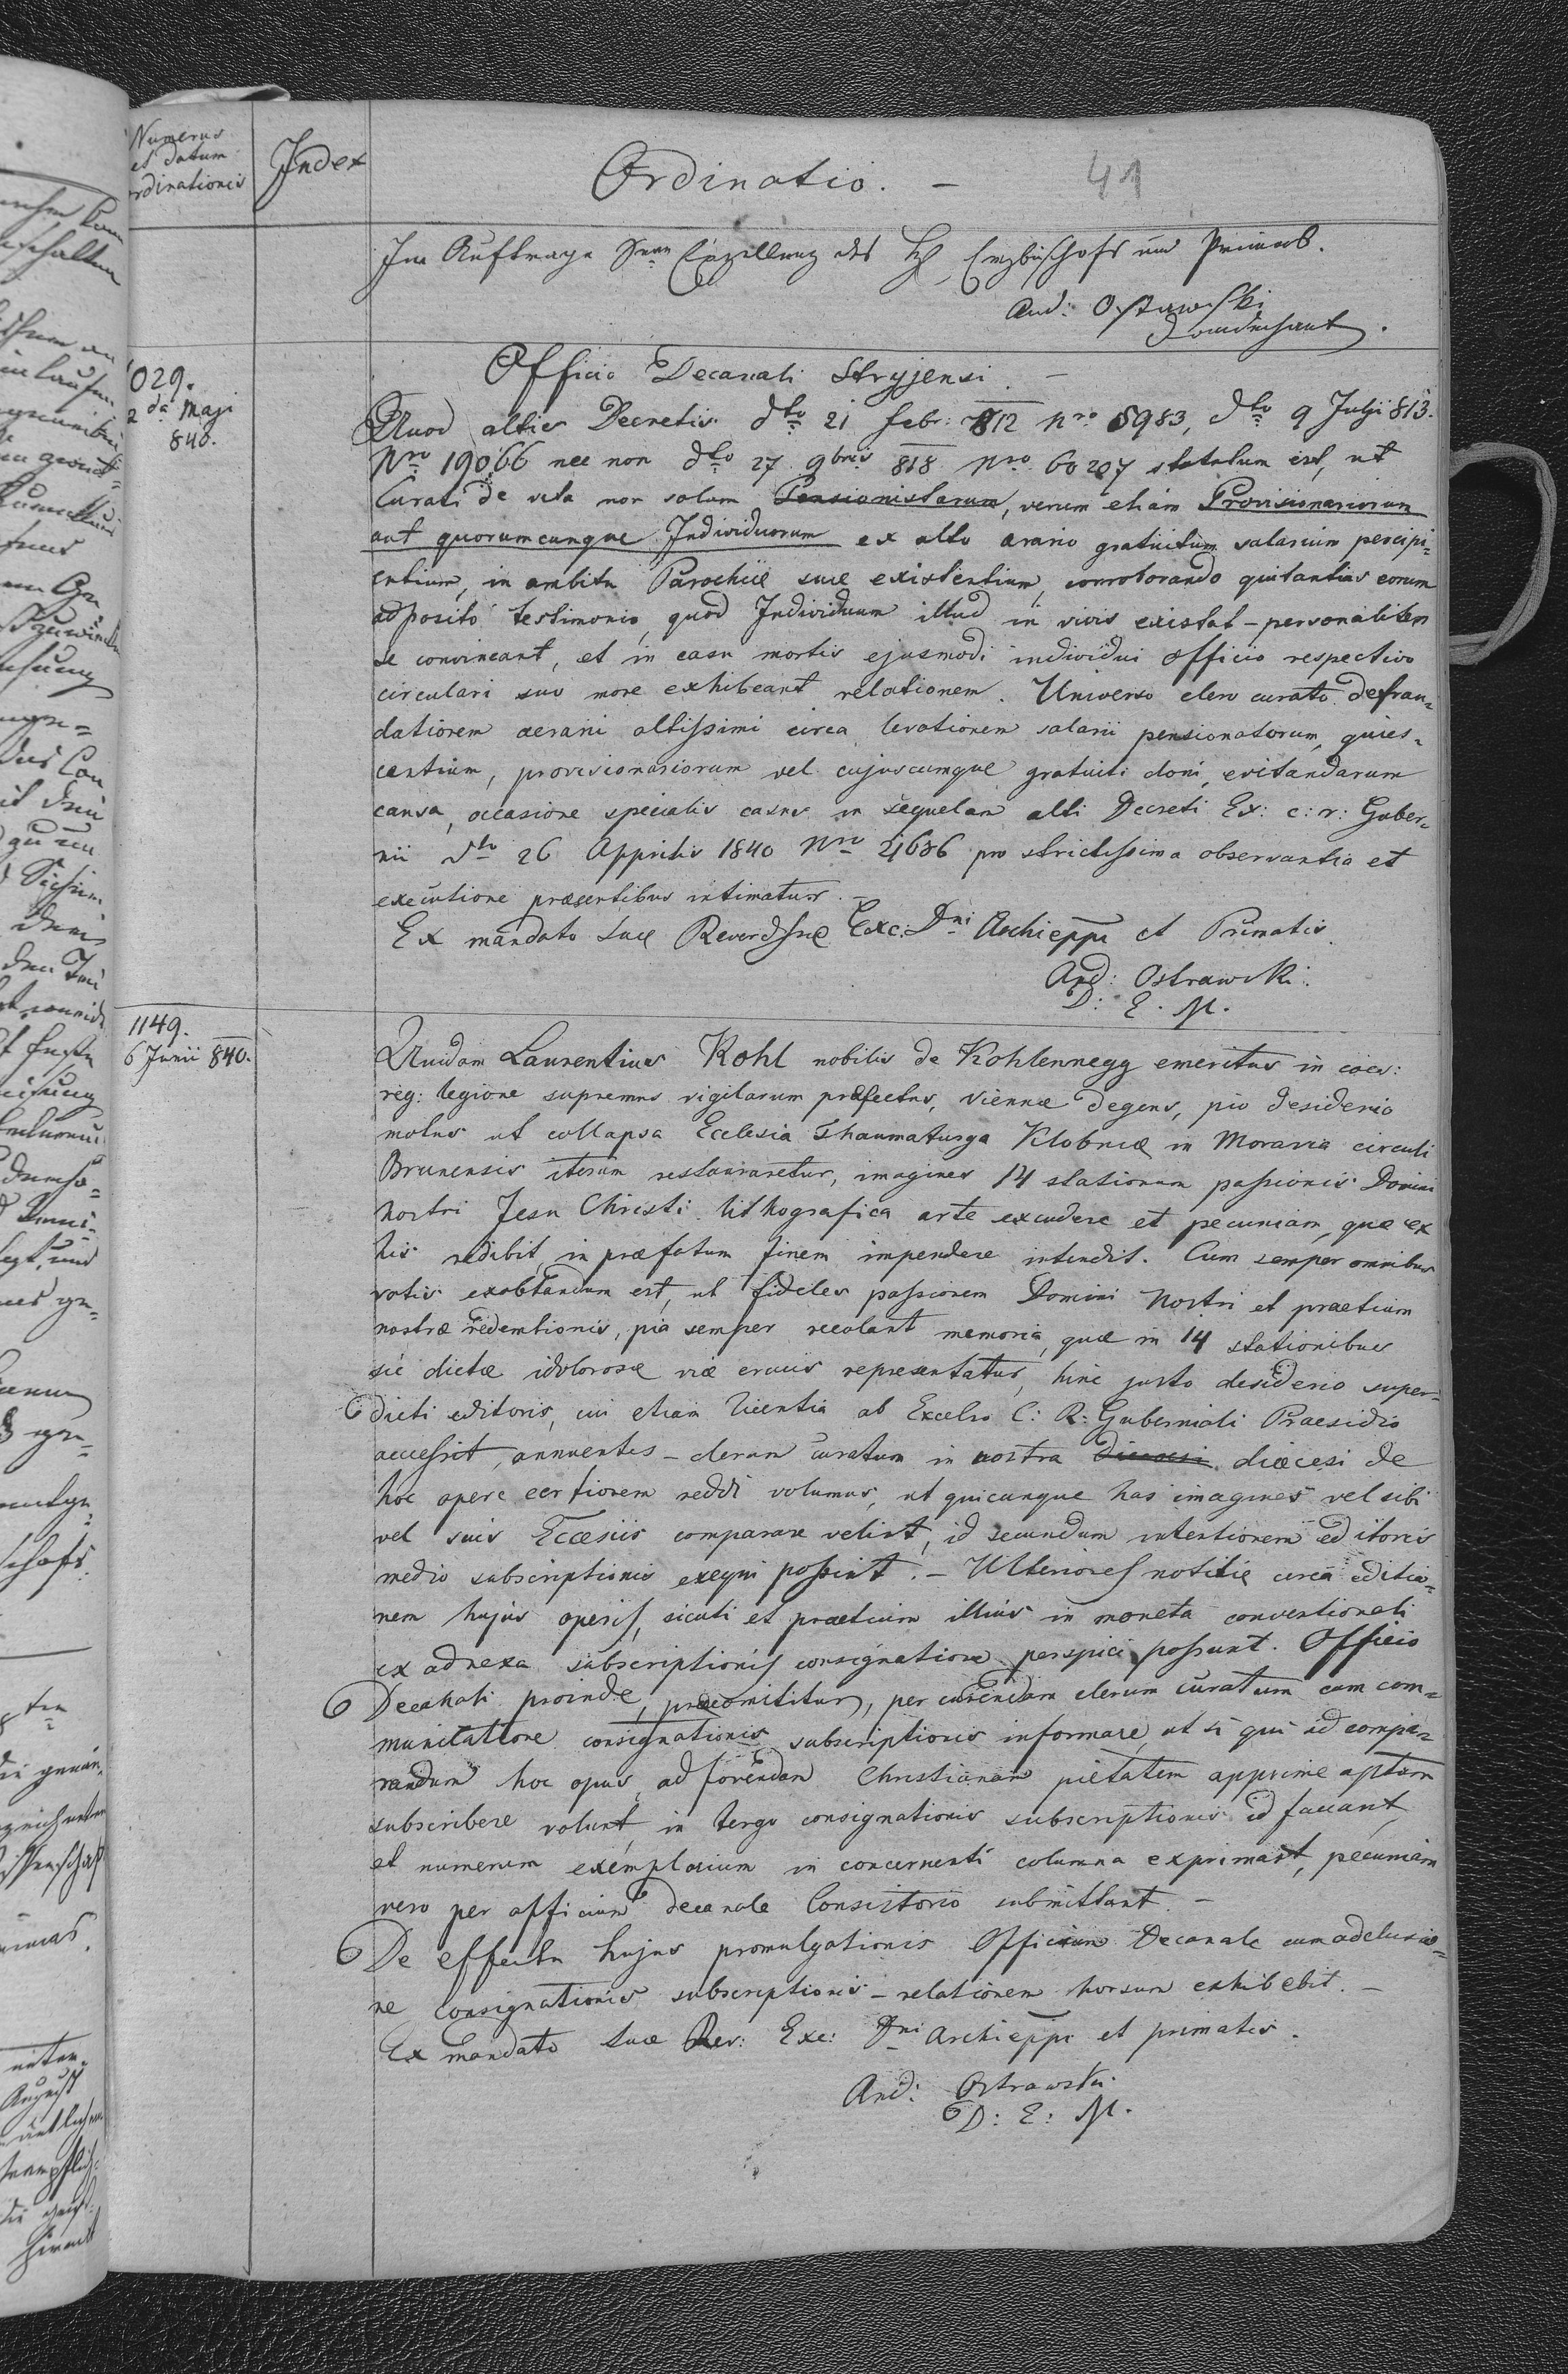 Numerus
et datum
rdinationis
Index
Ordinatio. –
41
Im Auftrage Sr Exzellenz des H Erzbischofs und Primas.
And: Ostrawski
Domdechant.
029.
2 da Maji
840.
Officio Decanali Stryjensi. –
Quod altis Decretis dto 21 febr: 812 Nro 5983, dto 9 Julji 813.
Nro 19066 nec non dto 27 9bris 818 Nro 60207 statutum est, ut
Curati de vita non solum Pensionistarum, verum etiam Provisionariorum
aut quorumcunque Individuorum ex alto arario gratuitum salarium percipi=
entium, in ambitu Parochiæ suæ existentium, corroborando quitantias eorum
adposito testimonio, quod Individuum illud in vivis existat – personaliter
se convincant, et in casu mortis ejusmodi individui officio respectivo
circulari suo more exhibeant relationem. Universo clero curato defrau=
dationem aerarii altissimi circa levationem salarii pensionatorum, quies=
centium, provisionariorum vel cujuscumque gratuiti doni, evitandarum
causa, occasione specialis casus in sequelam alti Decreti Ex: c: r: Guber=
nii dto 26 Apprilis 1840 Nro 4686 pro strictissima observantia et
executione præsentibus intimatur. –
Ex mandato Suæ Reverdssmæ Exc: Dni Archieppi et Primatis
And: Ostrawski.
D: E. M.
1149.
6 Junii 840.
Quidam Laurentius Kohl nobilis de Kohlennegg emeritus in caes:
reg: legione supremus vigilarum præfectus, Viennæ degens, pio desiderio
motus ut collapsa Ecclesia Thaumaturga Klobnicæ in Moravia circuli
Brunensis iterum restauraretur, imagines 14 stationum passionis Domini
Nostri Jesu Christi lithografica arte excudere et pecuniam, quæ ex
his redibit, in præfatum finem impendere intendit. Cum semper omnibus
votis exobtandum est, ut fideles passionem Domini Nostri et praetium
nostræ redemtionis, pia semper recolant memoria, quæ in 14 stationibus
sic dictæ dolorosæ viæ crucis representatur, hinc justo desiderio super=
dicti editoris, cui etiam licentia ab Excelso C: R: Guberniali Praesidio
accessit, annuentes – clerum curatum in nostra diæcesi de
hoc opere certiorem reddi volumus, ut quicunque has imagines vel sibi
vel suis Ecclesiis comparare velint, id secundum intentionem editoris
medio subscriptionis exequi possint. – Ulteriores notitiæ circa editio=
nem hujus operis, sicuti et praetium illius in moneta conventionali
ex adnexa subscriptionis consignatione perspici possunt. Officio
Decanali proinde, præcomittitur, per currendam clerum curatum cum com=
municatione consignationis subscriptionis informare, ut si qui ad compa=
randum hoc opus, ad fovendam Christianam pietatem apprime aptum
subscribere volunt, in tergo consignationis subscriptionis id faciant,
et numerum exemplarium in concernenti columna exprimant, pecuniam
vero per officium decanale Consistorio submittant. –
De effectu hujus promulgationis Officium Decanale cum adclusio=
ne consignationis subscriptionis – relationem horsum exhibebit. –
Ex mandato Suæ Rev: Exc: Dni Archieppi et primatis.
And: Ostrawski
D: E: M.